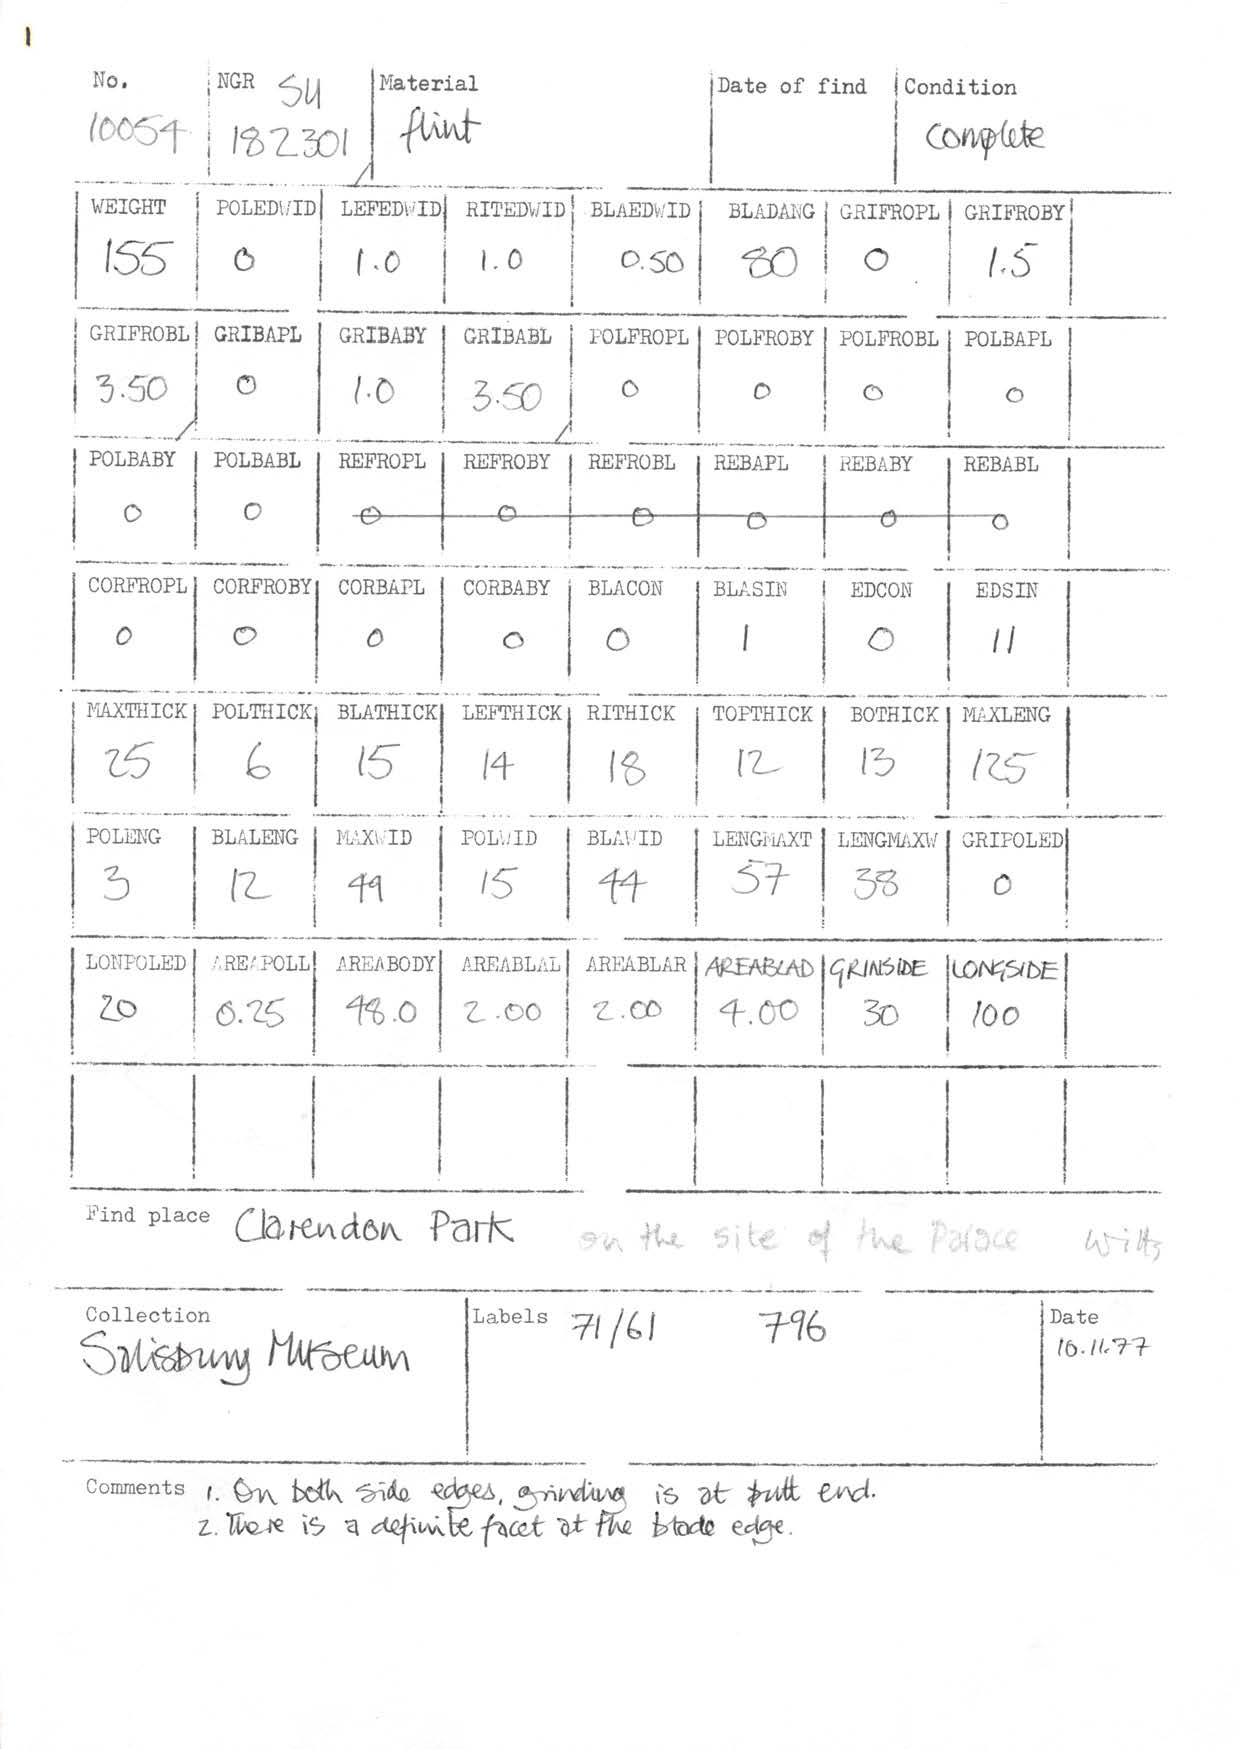 1
No. NGR SU Material Date of find Condition
10054 182301 flint complete
WEIGHT POLEDWID LEFEDWID RITEDWID BLAEDWID BLADANG GRIFROPL GRIFROBY
155 0 1.0 1.0 0.50 80 0 1.5
GRIFROBL GRIBAPL GRIBABY GRIBABL POLFROPL POLFROBY POLFROBL POLBAPL
3.50 0 1.0 3.50 0 0 0 0
POLBABY POLBABL REFROPL REFROBY REFROBL REBAPL REBABY REBABL
0 0 0 0 0 0 0 0
CORFROPL CORFROBY CORBAPL CORBABY BLACON BLASIN EDCON EDSIN
0 0 0 0 0 1 0 11
MAXTHICK POLTHICK BLATHICK LEFTHICK RITHICK TOPTHICK BOTHICK MAXLENG
25 6 15 14 18 12 13 125
POLENG BLALENG MAXWID POLWID BLAWID LENGMAXT LENGMAXW GRIPOLED
3 12 49 15 44 57 38 0
LONPOLED AREAPOLL AREABODY AREABLAL AREABLAR AREABLAD GRINSIDE LONGSIDE
20 0.25 48.0 2.00 2.00 4.00 30 100
Find place Clarendon Park on the site of the Palace Wilts
Collection Labels 71/61 796 Date
Salisbury Museum 10.11.77
Comments 1. On both side edges, grinding is at butt end.
2. There is a definite facet at the blade edge.